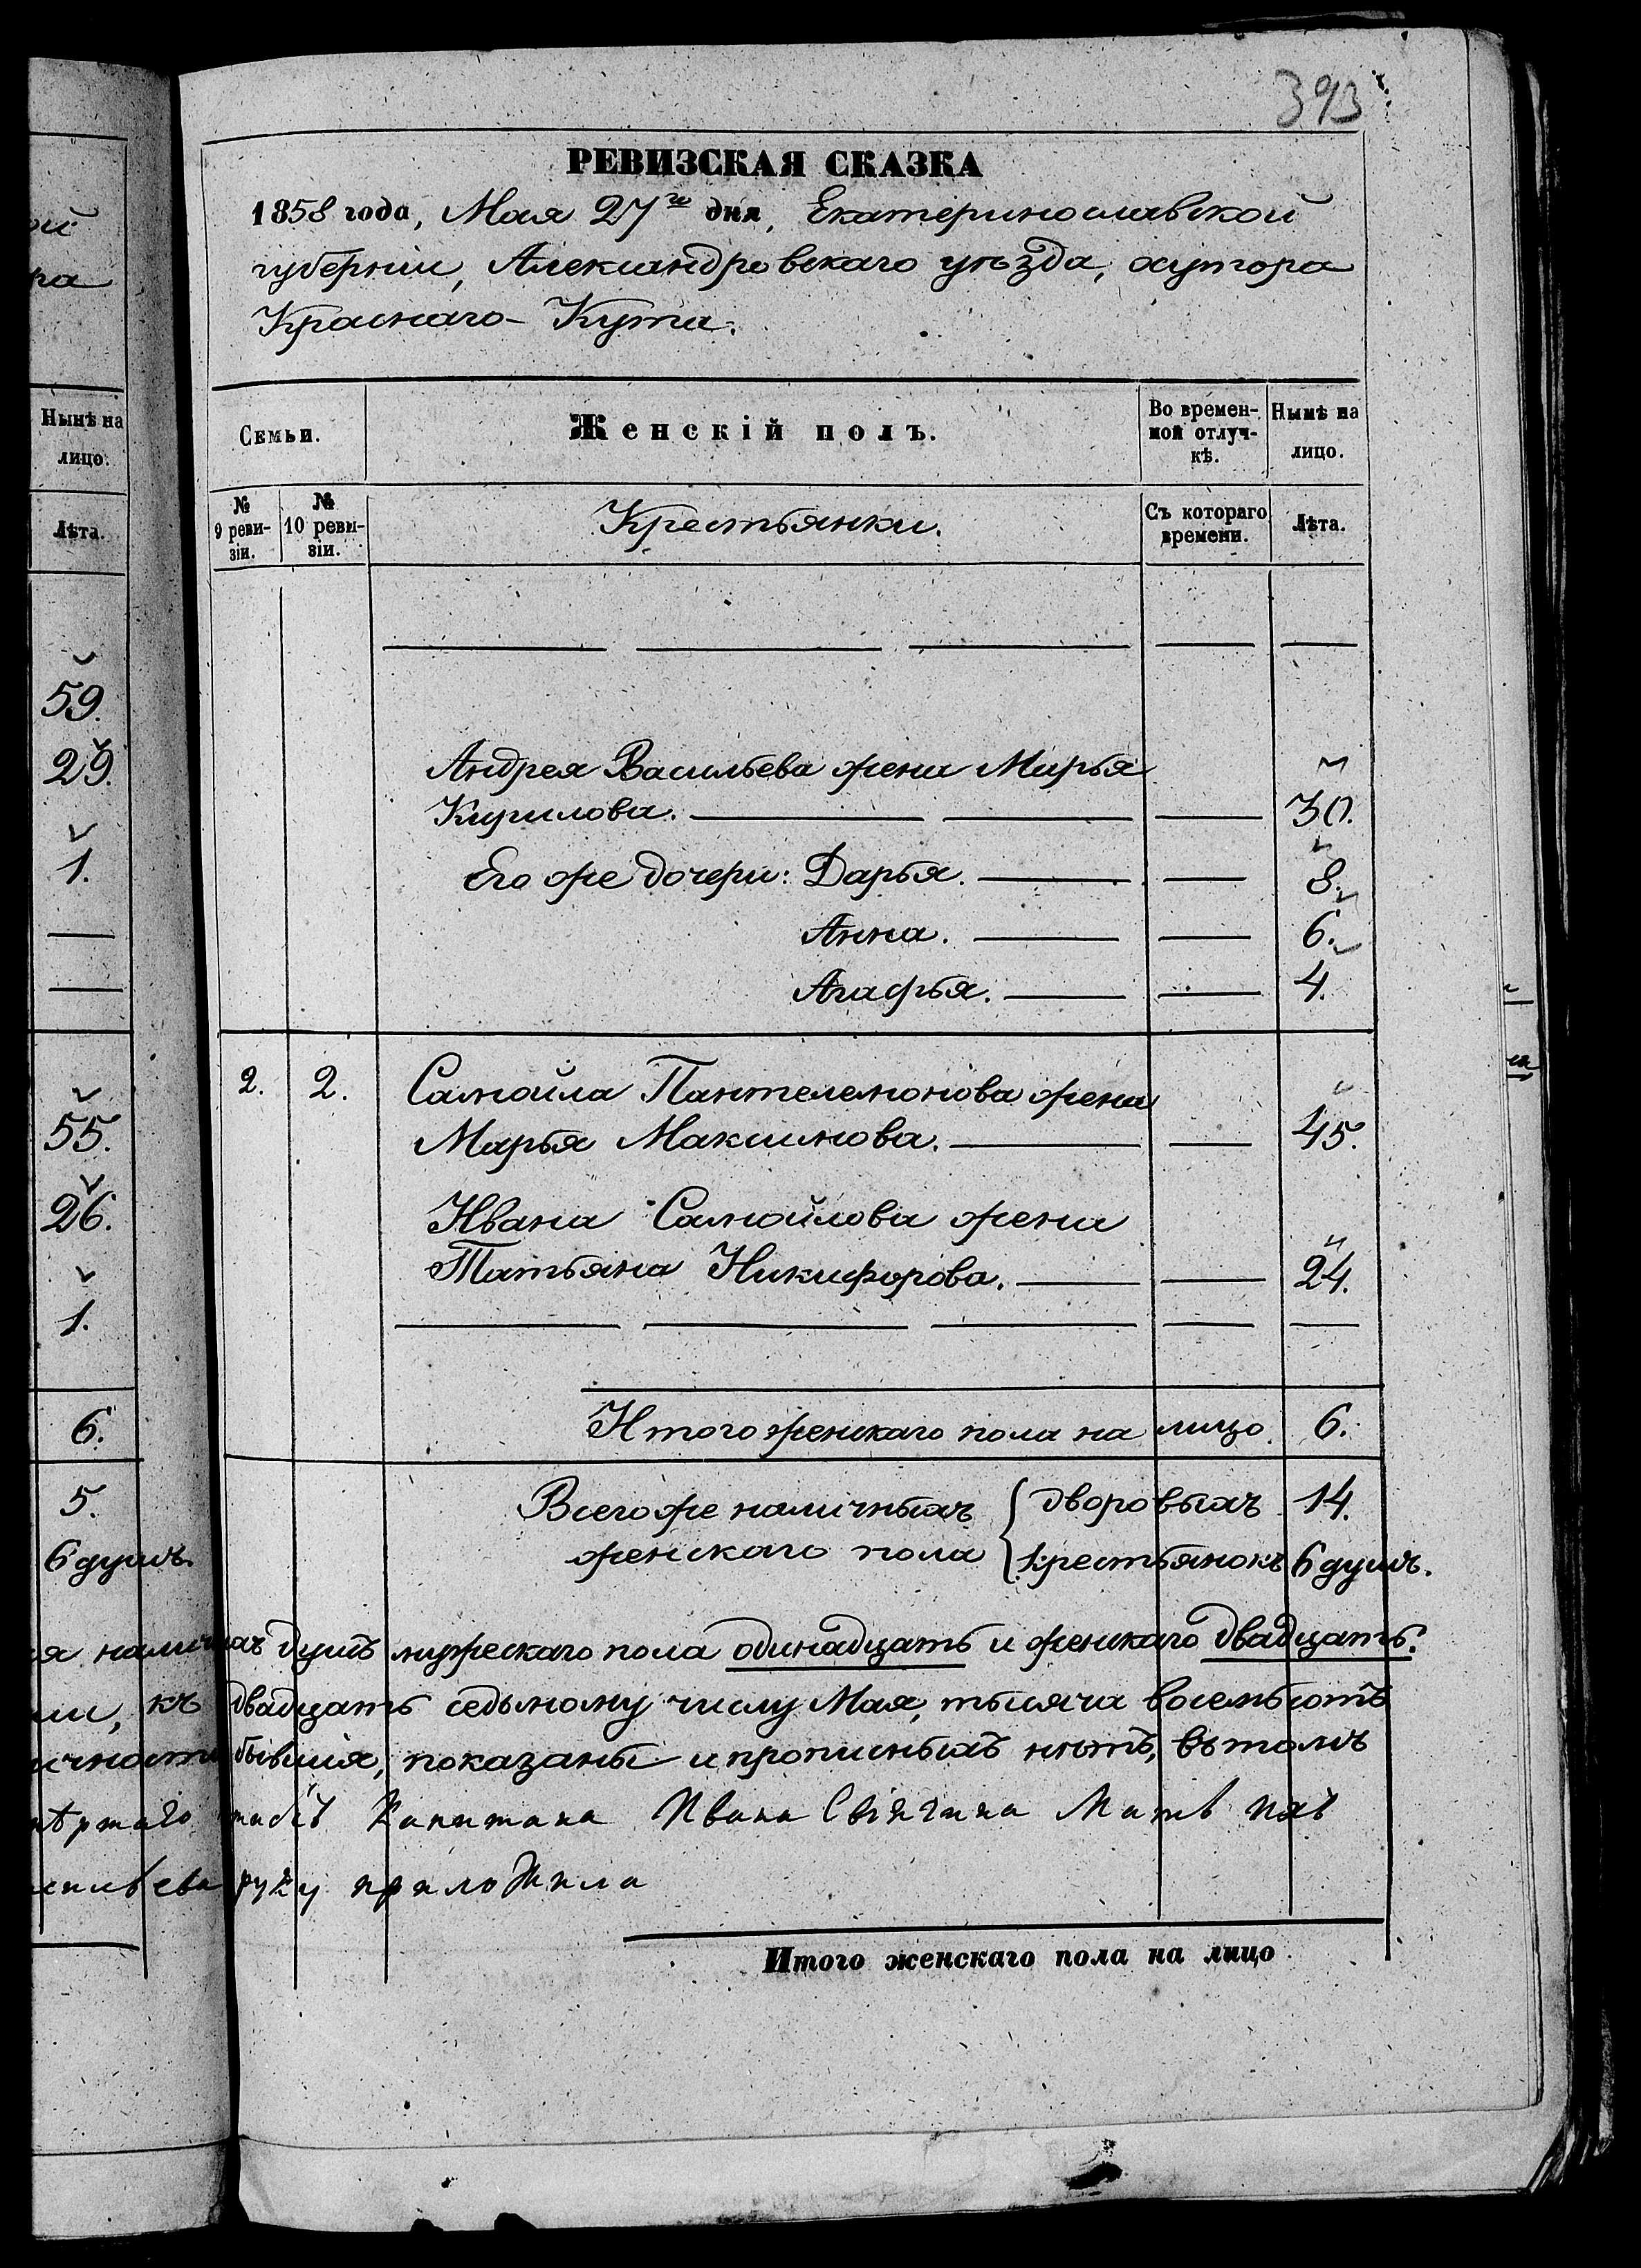 393
РЕВИЗСКАЯ СКАЗКА
1858 года, Мая 27го дня, Екатеринославской
губернiи, Александровскаго уѣзда, хутора
Краснаго-Кута.
Нынѣ на лицо.
Лѣта.
59.
29.
1.
55.
26.
1.
6.
5.
6 душъ.
Семьи. Женскiй полъ. Во времен-ной отлуч-кѣ. Нынѣ на лицо.
№ 9 реви-зiи. № 10 реви-зiи. Крестьянки. Съ котораго времени. Лѣта.
Андрея Васильева жена Марья
Кирилова. 30.
Его же дочери: Дарья. 8.
Анна. 6.
Агафья. 4.
2. 2. Самойла Пантелемонова жена
Марья Максимова. 45.
Ивана Самойлова жена
Татьяна Никифорова. 24.
Итого женскаго пола на лицо 6.
Всего же наличныхъ дворовыхъ 14.
женскаго пола крестьянокъ 6 душъ.
душъ мужескаго пола одинадцать и женскаго двадцать.
къ двадцать седьмому числу Мая, тысяча восемьсотъ
бывшiя, показаны и прописныхъ нѣтъ, въ томъ
Капитана Ивана
руку приложила
Итого женскаго пола на лицо